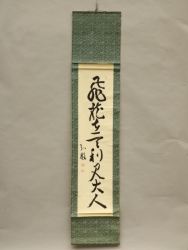 飛龍在天利見大人